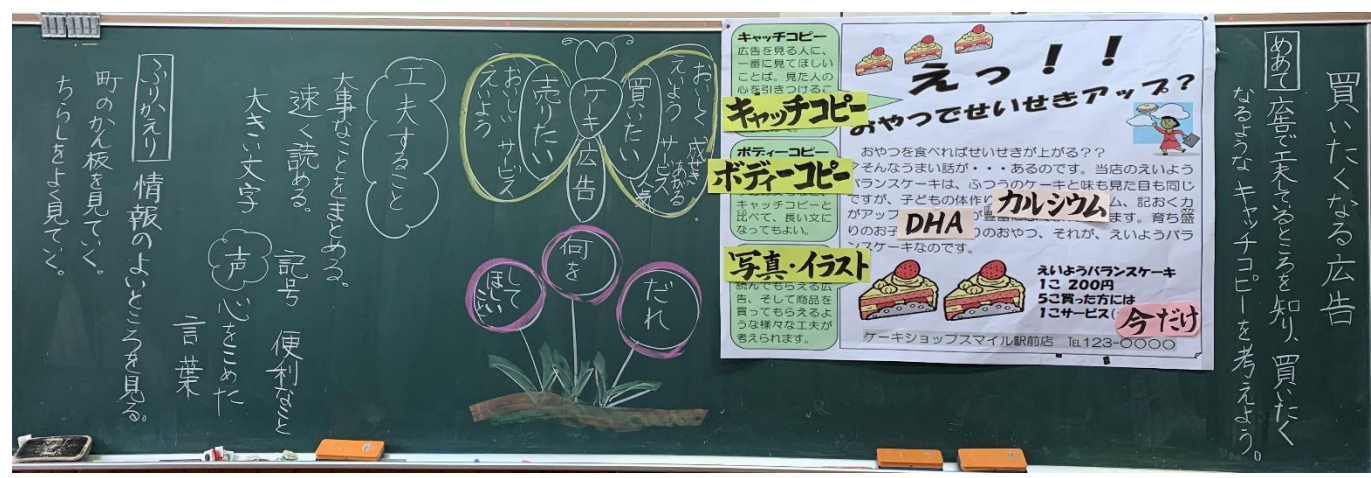 買いたくなる広告
めあて 広告で工夫しているところを知り、買いたく
なるような キャッチコピーを考えよう。
キャッチコピー
広告を見る人に、
一番に見てほしい
ことば。見た人の
心を引きつけるこ
キャッチコピー
ボディーコピー
ボディーコピー
キャッチコピーと
比べて、長い文に
なってもよい。
写真・イラスト
読んでもらえる広
告、そして商品を
買ってもらえるよ
うな様々な工夫が
考えられます。
えっ!!
おやつでせいせきアップ?
おやつを食べればせいせきが上がる??
そんなうまい話が・・・あるのです。当店のえいよう
バランスケーキは、ふつうのケーキと味も見た目も同じ
ですが、子どもの体作り カルシウム ム、記おく力
がアップ DHA が豊富に ます。育ち盛
りのお子 りのおやつ、それが、えいようバラ
ンスケーキなのです。
えいようバランスケーキ
1こ 200円
5こ買った方には
1こサービス(
今だけ
ケーキショップスマイル駅前店 TEL123-○○○○
おいしく 成せき あがる
えいよう サービス
買いたい 人気
ケーキ広告
売りたい
おいしい サービス
えいよう
だれ
何を
して
ほしい
工夫すること
大事なことをまとめる。
速く読める。 記号 便利なこと
大きい文字 声 心をこめた
言葉
ふりかえり 情報のよいところを見る。
町のかん板を見ていく。
ちらしをよく見ていく。